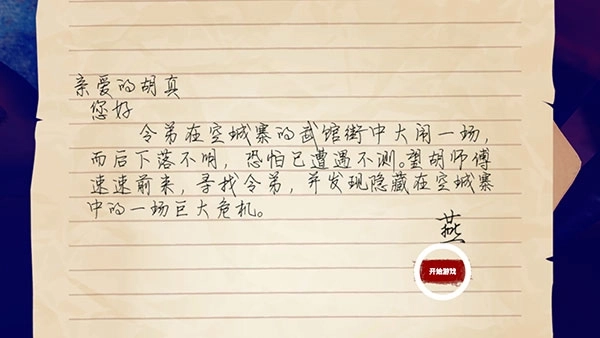 亲爱的胡真
您好
令弟在空城寨的武馆街中大闹一场，
而后下落不明，恐怕已遭遇不测。望胡师傅
速速前来，寻找令弟，并发现隐藏在空城寨
中的一场巨大危机。
燕
开始游戏